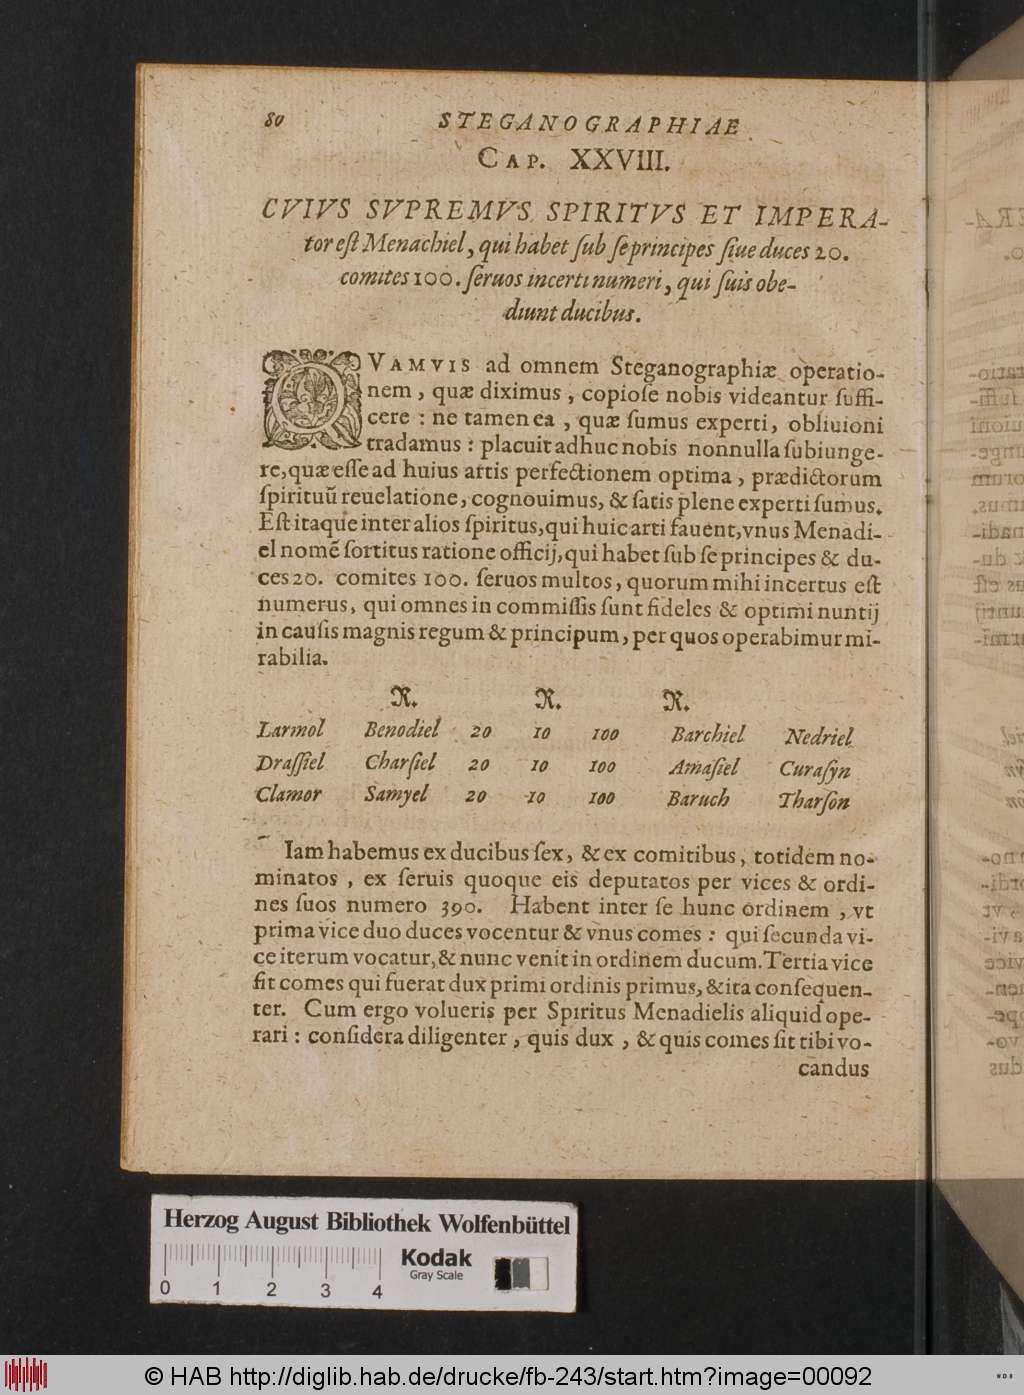 80 STEGANOGRAPHIAE
CAP. XXVIII.
CVIVS SVPREMVS SPIRITVS ET IMPERA-
tor eſt Menachiel, qui habet ſub ſe principes ſiue duces 20.
comites 100. ſeruos incerti numeri, qui ſuis obe-
diunt ducibus.
QVAMVIS ad omnem Steganographiæ operatio-
nem, quæ diximus, copioſe nobis videantur ſuffi-
cere: ne tamen ea, quæ ſumus experti, obliuioni
tradamus: placuit adhuc nobis nonnulla ſubiunge-
re, quæ eſſe ad huius artis perfectionem optima, prædictorum
ſpirituũ reuelatione, cognouimus, & ſatis plene experti ſumus.
Eſt itaque inter alios ſpiritus, qui huic arti fauent, vnus Menadi-
el nomẽ ſortitus ratione officij, qui habet ſub ſe principes & du-
ces 20. comites 100. ſeruos multos, quorum mihi incertus eſt
numerus, qui omnes in commiſſis ſunt fideles & optimi nuntij
in cauſis magnis regum & principum, per quos operabimur mi-
rabilia.
R. R. R.
Larmol Benodiel 20 10 100 Barchiel Nedriel
Draſſiel Charſiel 20 10 100 Amaſiel Curaſyn
Clamor Samyel 20 10 100 Baruch Tharſon
Iam habemus ex ducibus ſex, & ex comitibus, totidem no-
minatos, ex ſeruis quoque eis deputatos per vices & ordi-
nes ſuos numero 390. Habent inter ſe hunc ordinem, vt
prima vice duo duces vocentur & vnus comes: qui ſecunda vi-
ce iterum vocatur, & nunc venit in ordinem ducum. Tertia vice
fit comes qui fuerat dux primi ordinis primus, & ita conſequen-
ter. Cum ergo volueris per Spiritus Menadielis aliquid ope-
rari: conſidera diligenter, quis dux, & quis comes ſit tibi vo-
candus
Herzog August Bibliothek Wolfenbüttel
Kodak
Gray Scale
0 1 2 3 4
© HAB http://diglib.hab.de/drucke/fb-243/start.htm?image=00092